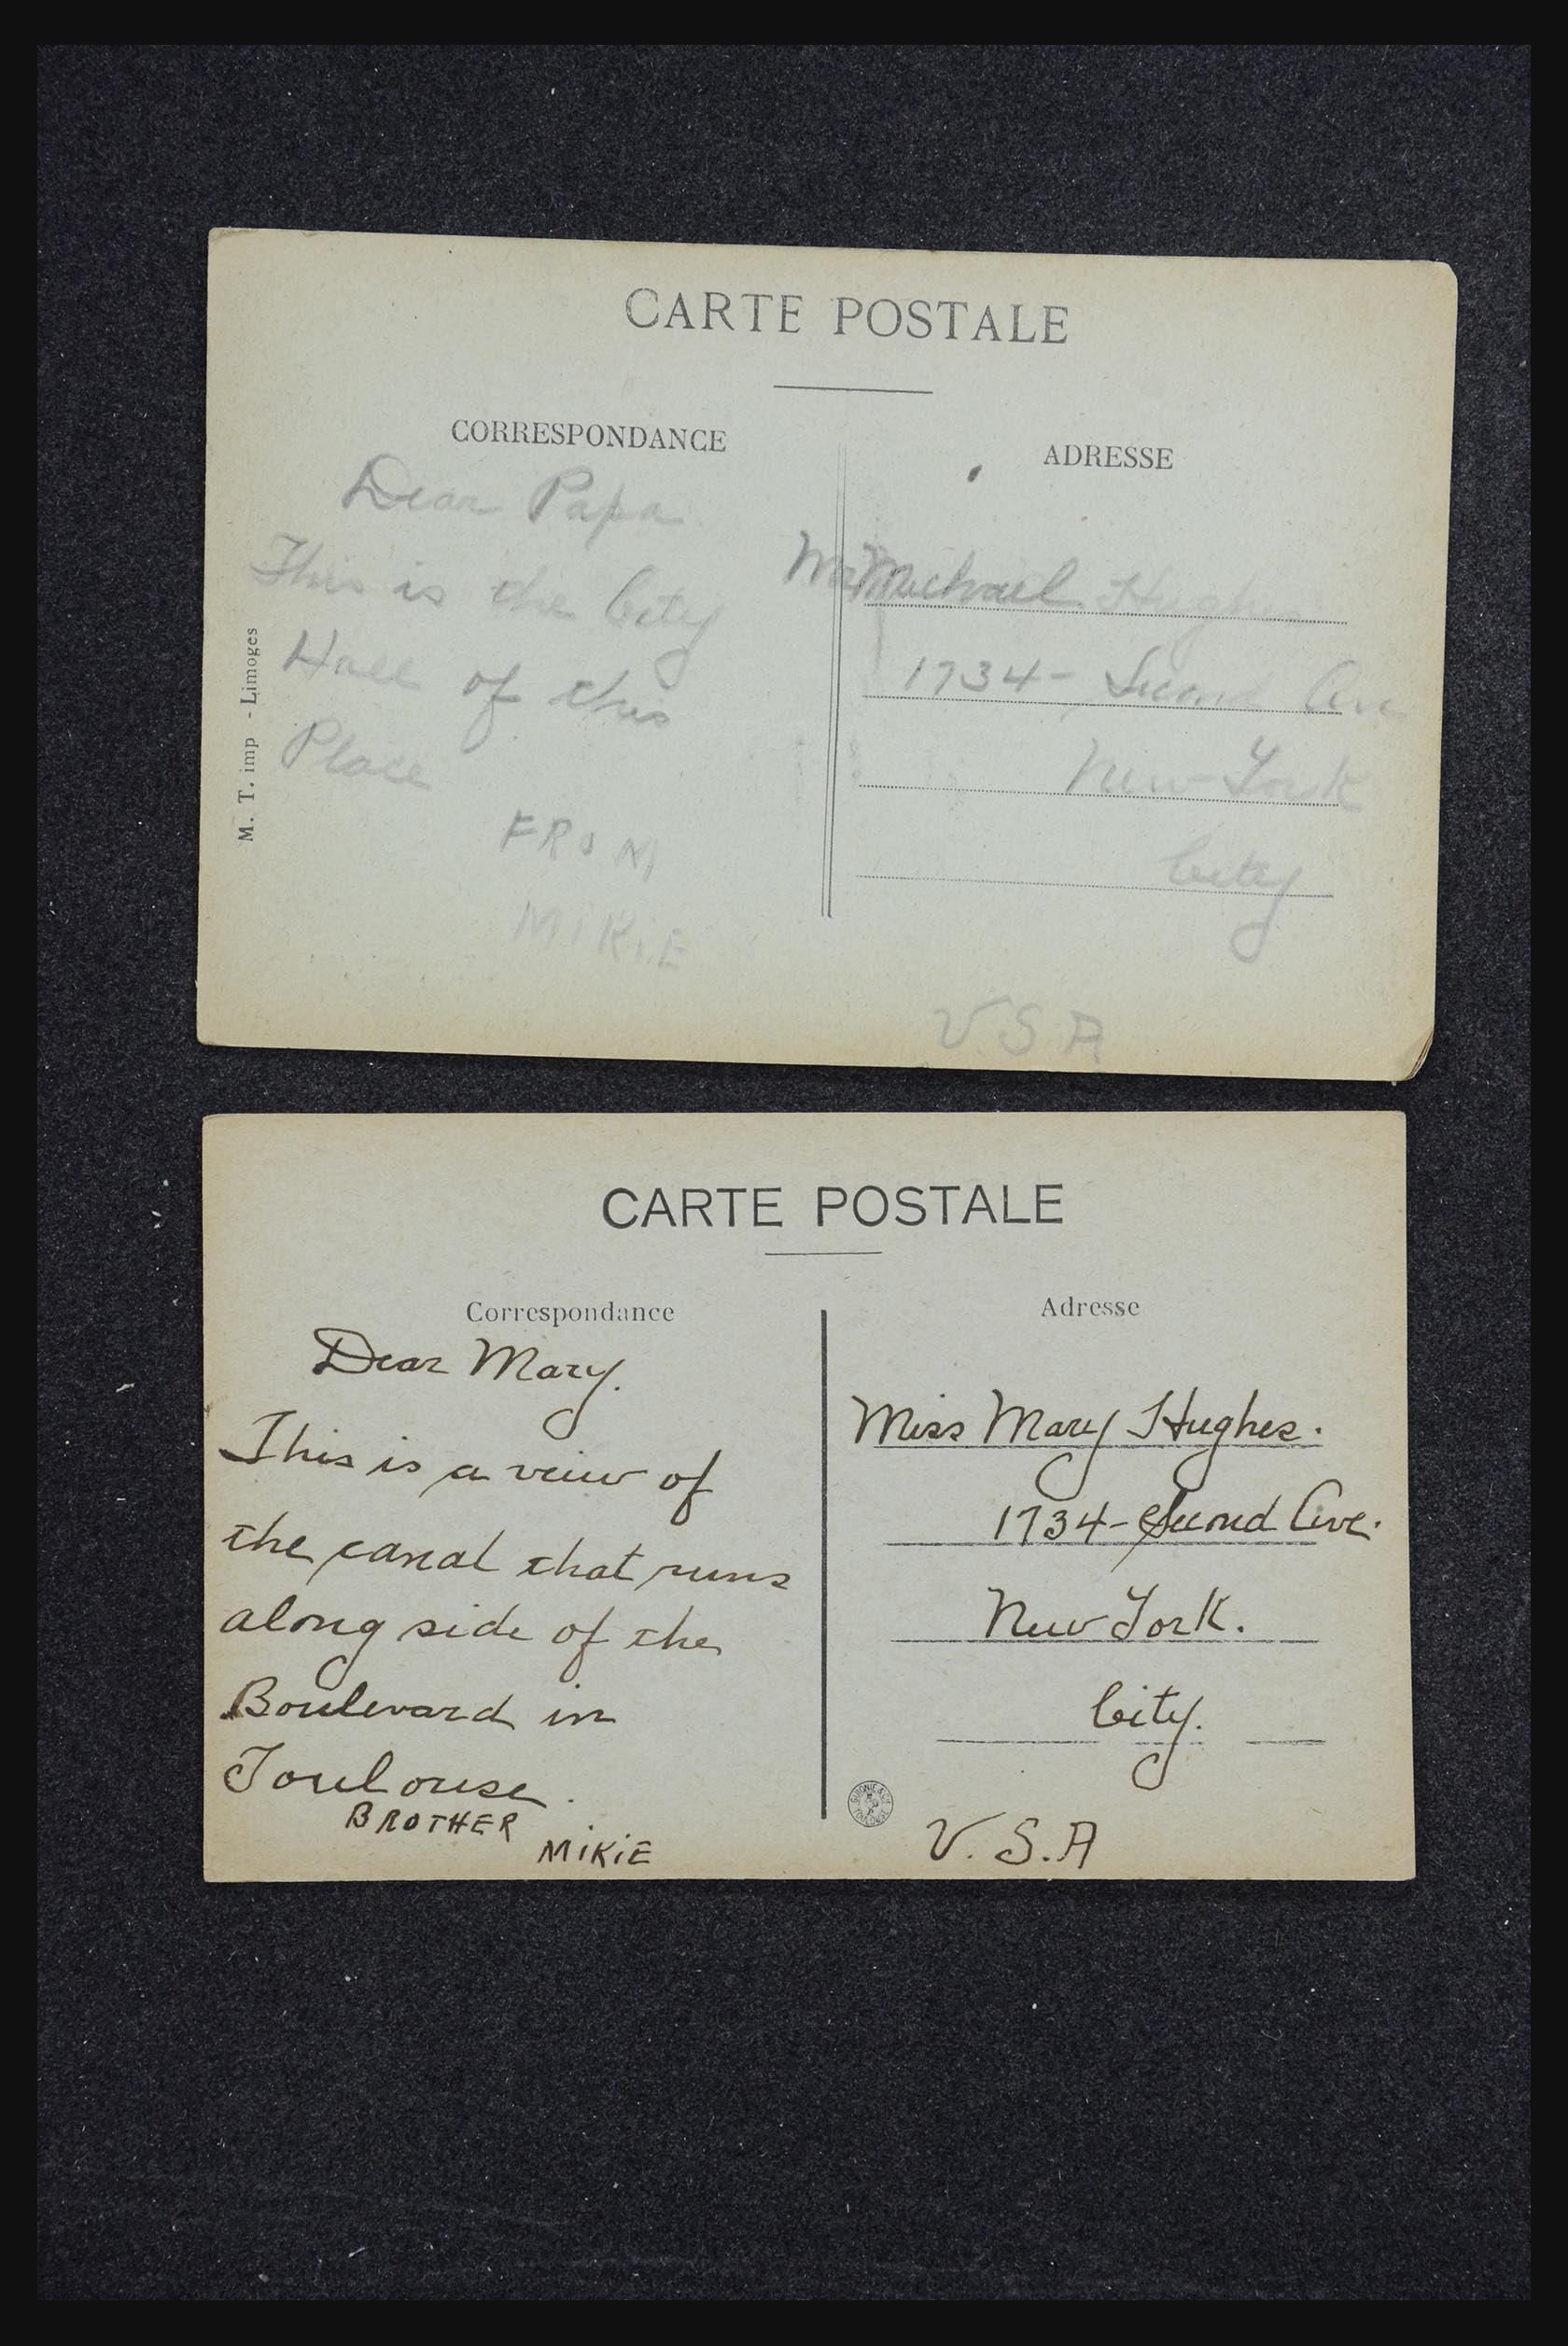 CARTE POSTALE
CORRESPONDANCE
ADRESSE
Dear Papa
This is the City
Hall of this
Place
FROM
MIKIE
M. T. imp - Limoges
Mr Michael Hughes
1734- Second Ave
New York
City
U S A
CARTE POSTALE
Correspondance
Adresse
Dear Mary.
This is a veiw of
the canal that runs
along side of the
Boulevard in
Toulouse.
BROTHER
MIKIE
Miss Mary Hughes.
1734- Second Ave.
New York.
City.
U. S. A